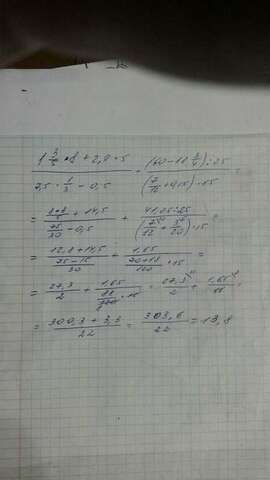 (1 3/5 · 8 + 2,9 · 5) / (2,5 · 1/3 - 0,5) + ((60 - 18 3/4) : 25) / ((7/12 + 0,15) · 15) =
= (8·8/5 + 14,5) / (25/30 - 0,5) + (41,25 : 25) / ((7/12 + 3/20) · 15) =
= (12,8 + 14,5) / ((25 - 15)/30) + 1,65 / ((70 + 18)/120 · 15) =
= 27,3/2 + 1,65 / (88/120 · 15) = 27,3/2 + 1,65/11 =
= (300,3 + 3,3)/22 = 303,6/22 = 13,8